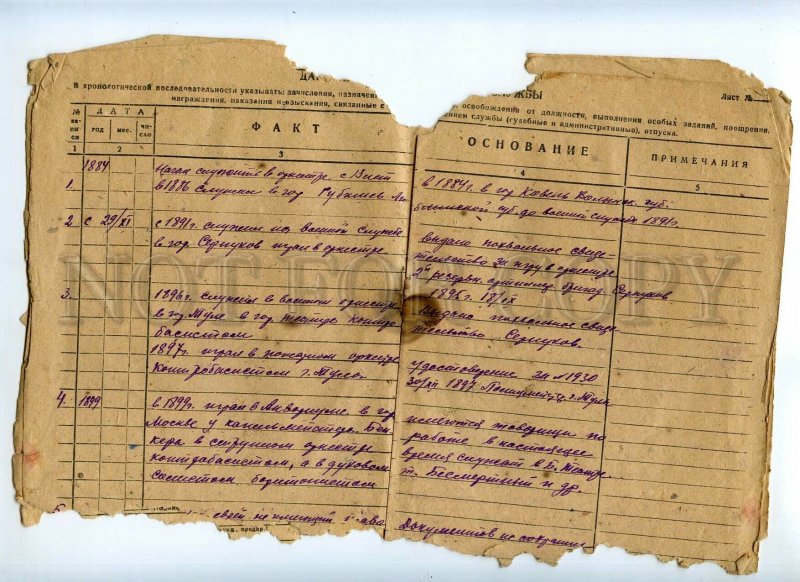 СЛУЖБЫ
Лист №
В хронологической последовательности указывать: зачисления, назначени
освобождения от должности, выполнения особых заданий, поощрения,
награждения, наказания и взыскания, связанные с
нием службы (судебные и административные), отпуска.
№ за-пи-си
ДАТА
год
мес.
чи-сло
ФАКТ
ОСНОВАНИЕ
ПРИМЕЧАНИЯ
1
2
3
4
5
1.
1884
Начал служение в оркестре с
в 1886 служил в гор
в 1884г. в гор Ковель Волынск. губ.
губ. до военной службы 1891г.
2
с 29/XI
с 1891г. служил на военной службе
в гор. Серпухов играл в оркестре
выдано похвальное свиде-
тельство за игру в оркестре
2й резервн. Бригад. Серпухов
1895г. 19/IX
3.
1896г. служил в военном оркестре
в гор Туле в гор театре контра-
басистом
1897г. играл в пожарном оркестре
контрабасистом г. Тула.
выдано похвальное свиде-
тельство Серпухов.
удостоверение за №1930
30/XII 1897 г. Тула
4.
1899
в 1899г. играл в Аквариуме в гор
Москве у капельмейстера Бек-
кера в струнном оркестре
контрабасистом, а в духовом
баритонистом
имеются товарищи по
работе в настоящее
время служат в Б. Театре
т. Бессмертный и др.
5
не имеющий
Документов не сохранил
NOT FOR COPY